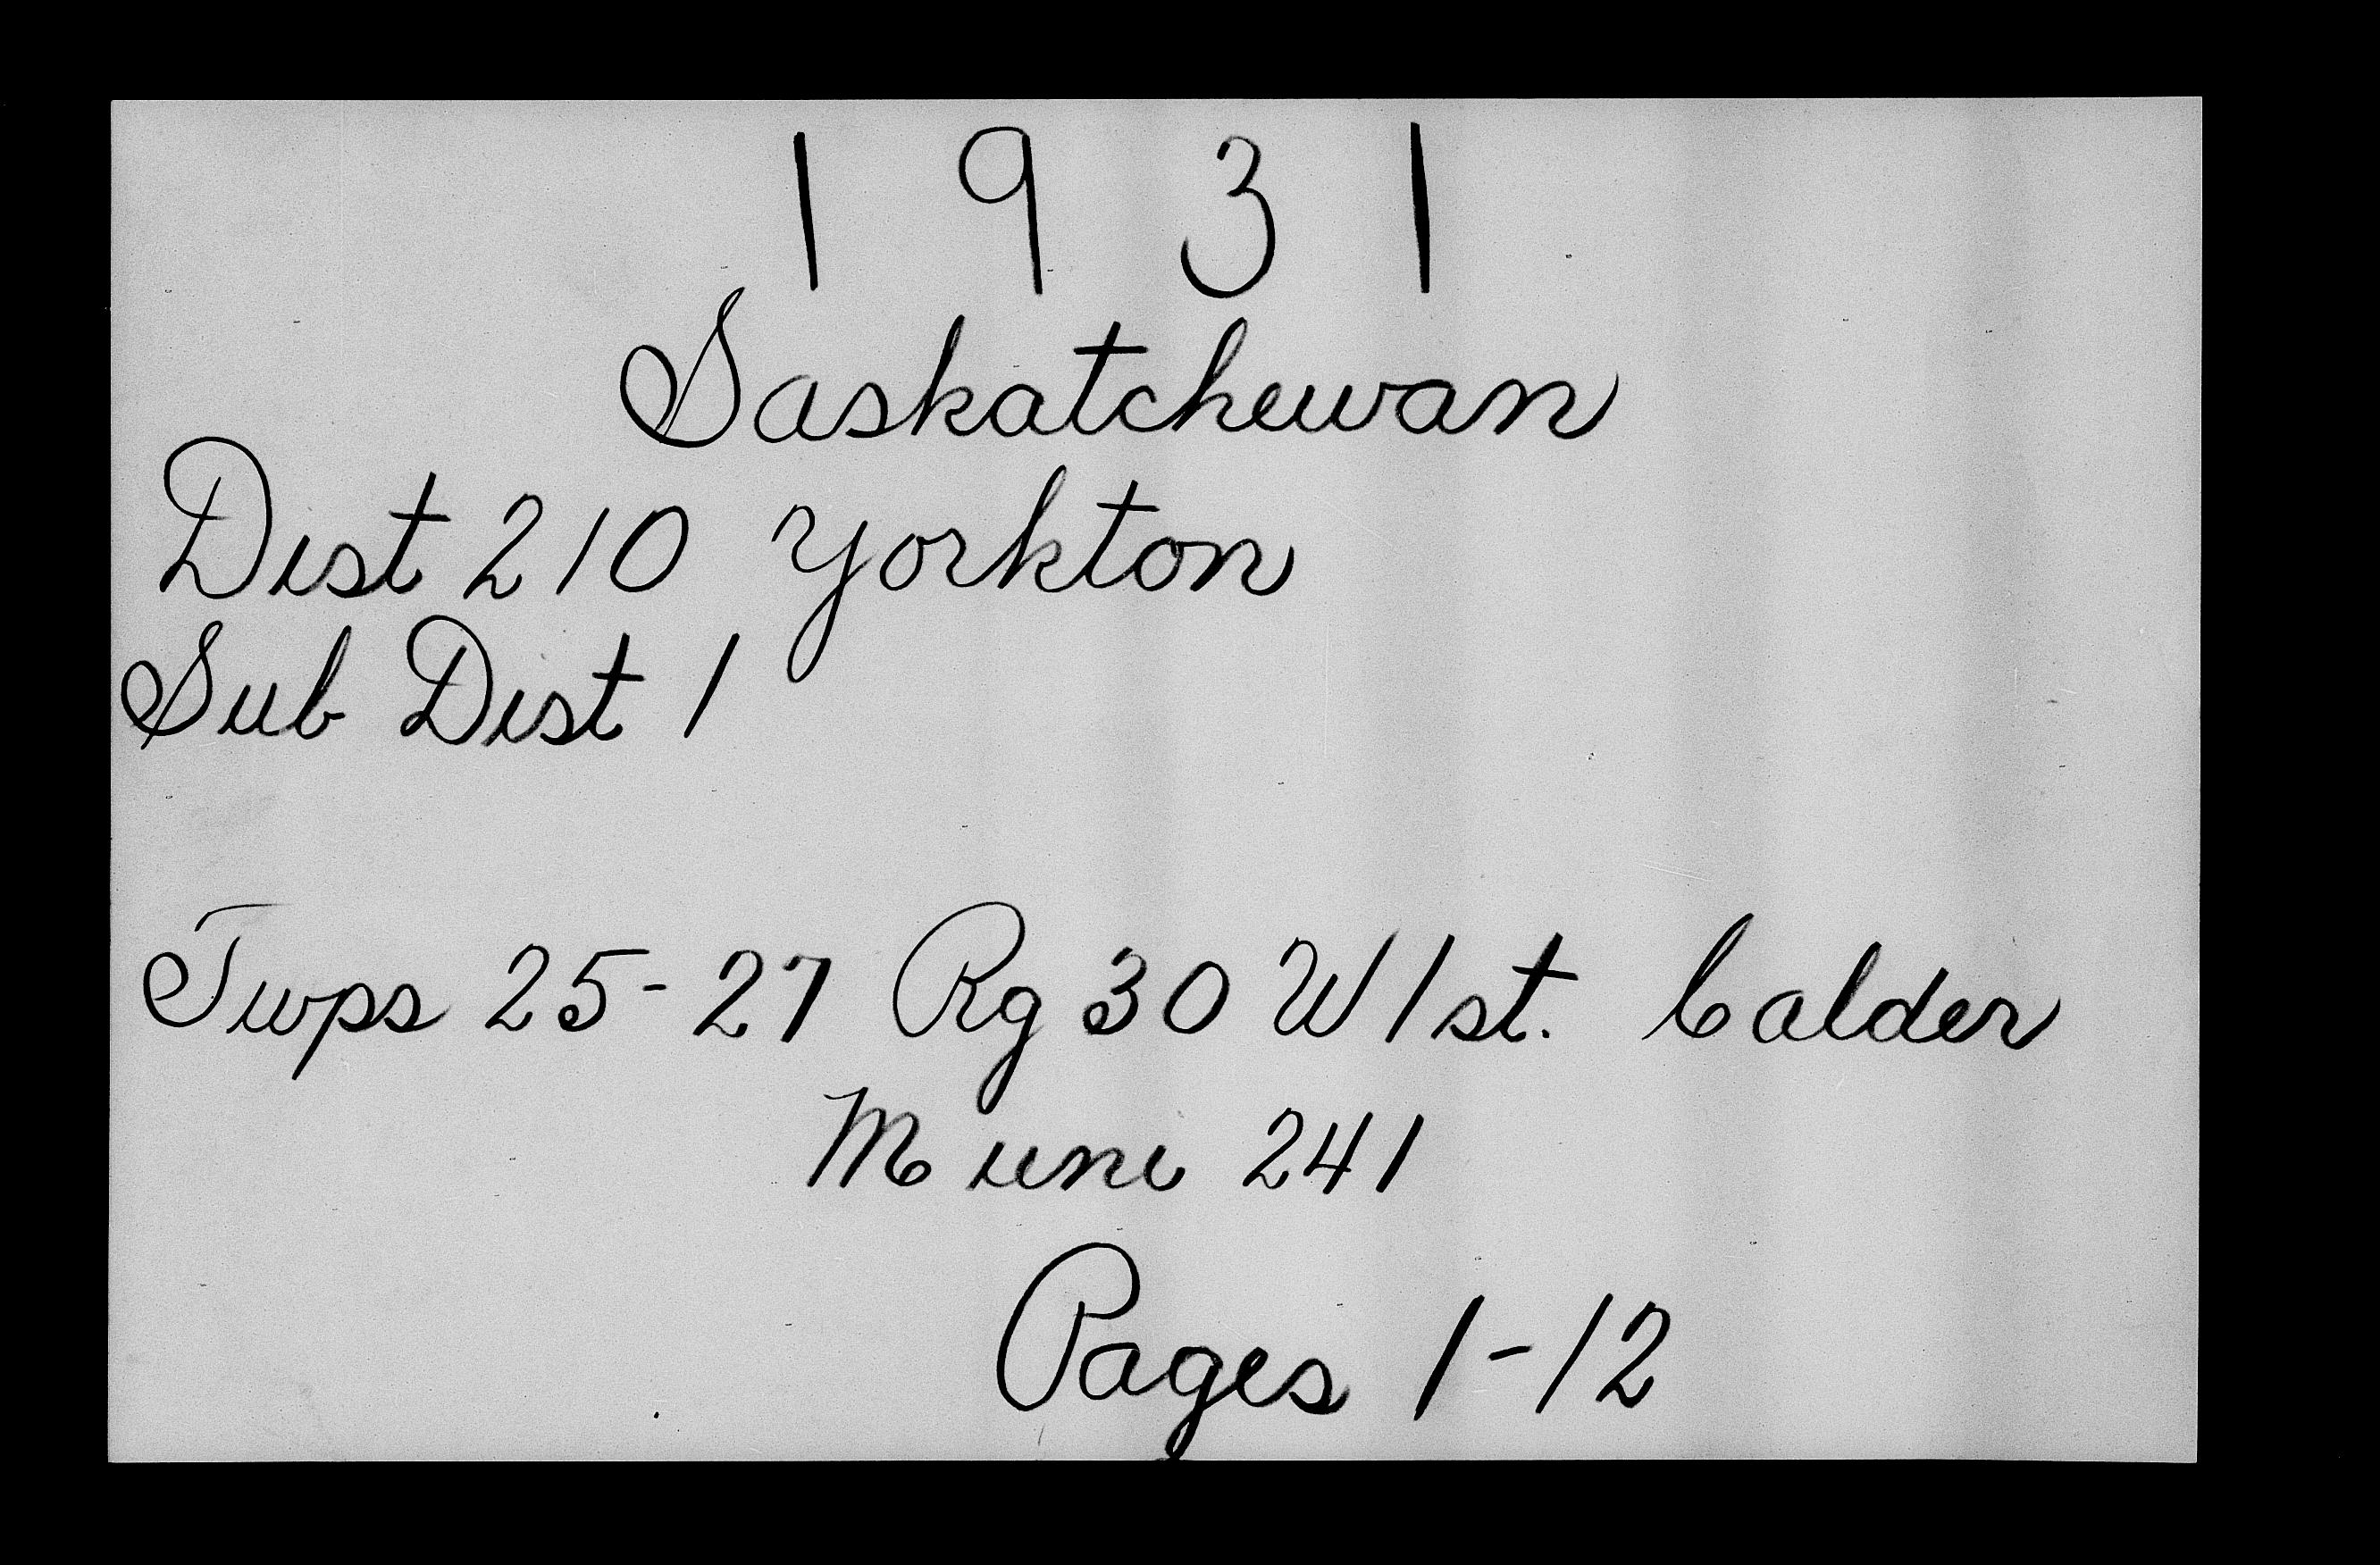 1931
Saskatchewan
Dist 210 Yorkton
Sub Dist 1
Twps 25-27 Rg 30 W 1st. Calder
Muni 241
Pages 1-12